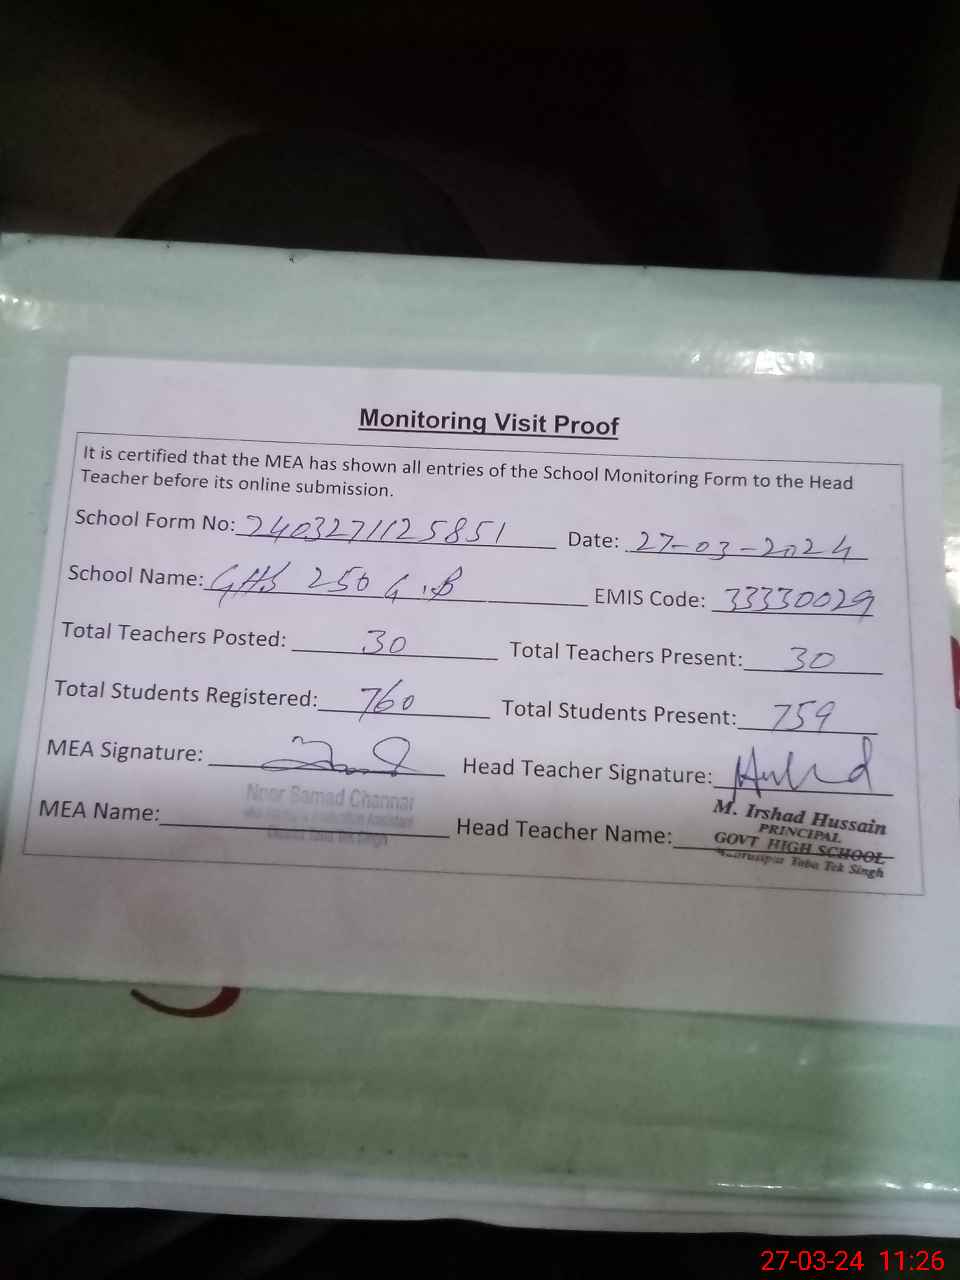 Monitoring Visit Proof
It is certified that the MEA has shown all entries of the School Monitoring Form to the Head
Teacher before its online submission.
School Form No: 2403271125851 Date: 27-03-2024
School Name: GHS 250 G.B EMIS Code: 33330029
Total Teachers Posted: 30 Total Teachers Present: 30
Total Students Registered: 760 Total Students Present: 759
MEA Signature: Head Teacher Signature:
MEA Name: Noor Samad Channar Head Teacher Name: M. Irshad Hussain
PRINCIPAL
GOVT HIGH SCHOOL
Toba Tek Singh
27-03-24 11:26